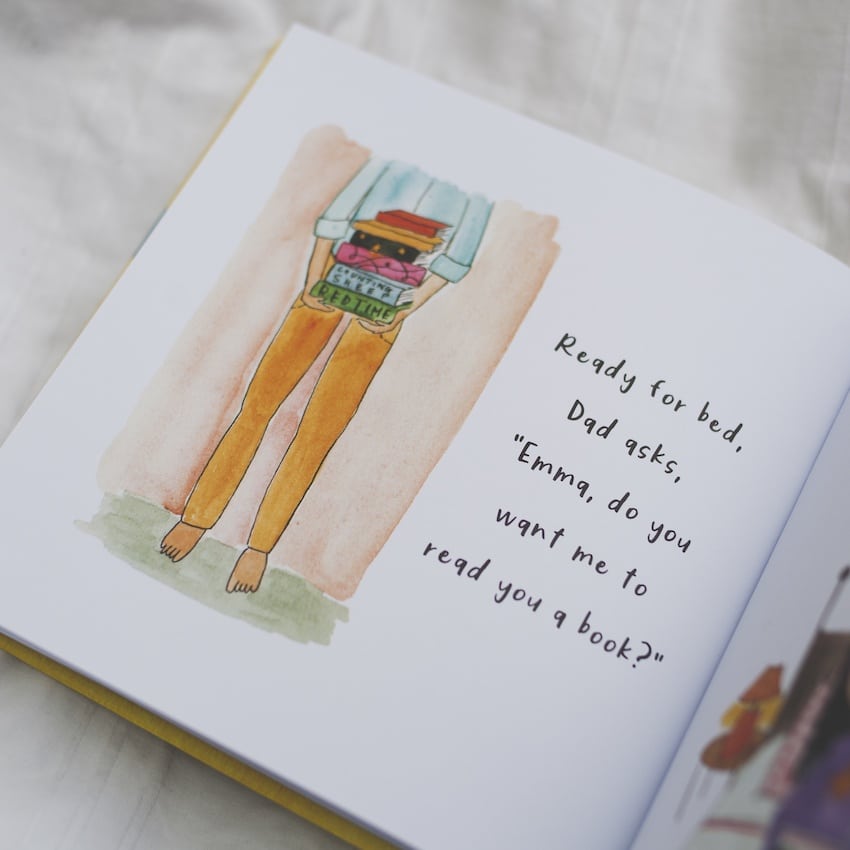 COUNTING
SHEEP
BEDTIME
Ready for bed,
Dad asks,
"Emma, do you
want me to
read you a book?"